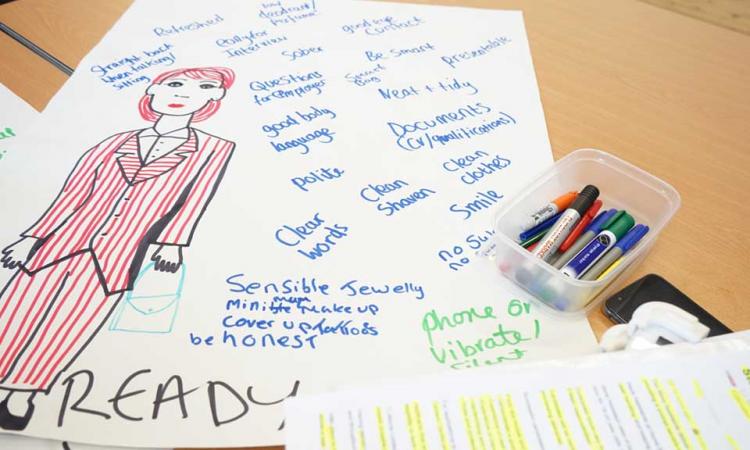 Refreshed
deodrant/
perfume
good eye
contact
straight back
when talking/
sitting
early for
Interview
Sober
Be smart
presentable
Smart
Bag
Questions
for employer
Neat + tidy
good body
language
Documents
(CV/qualifications)
polite
Clean
Shaven
clean
clothes
Smile
Clear
words
no
no
Sensible Jewelly
Minimum makeup
Cover up tattoos
be honest
phone or
vibrate/
Silent
READY